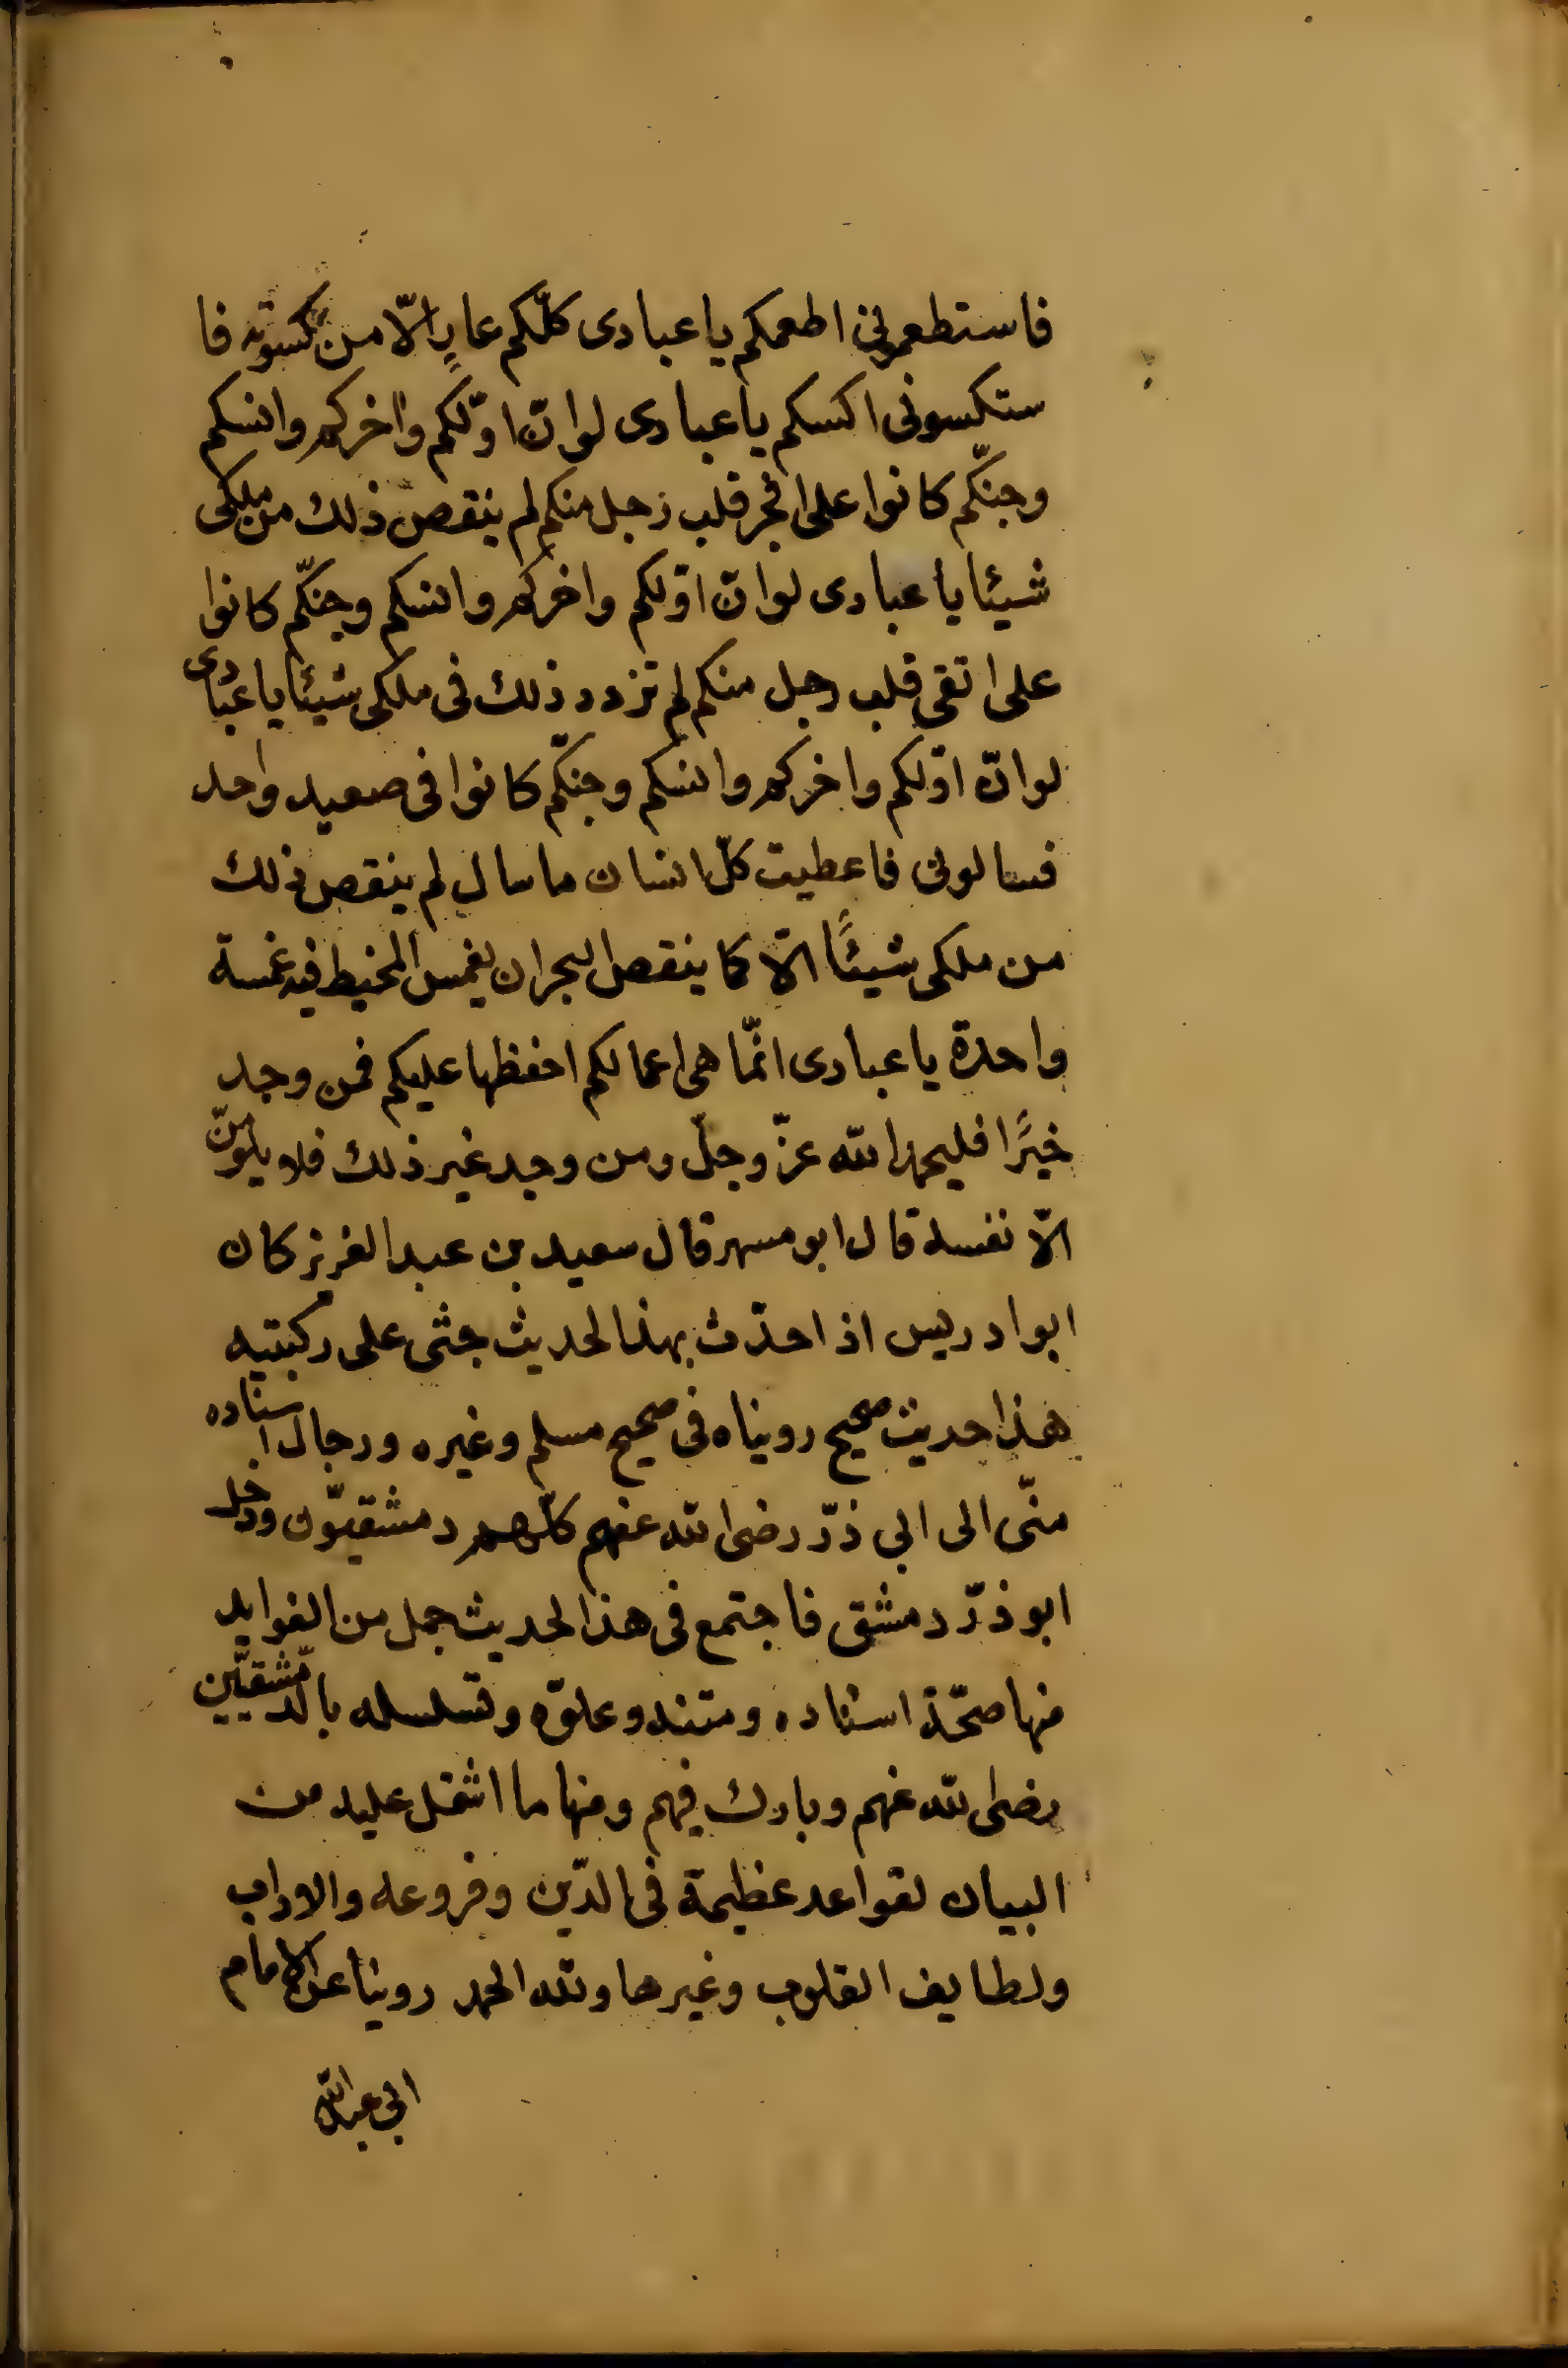 فاستطعمونی اطعمكم یا عبادی كلّكم عارٍ الّا من كسوته فا
ستكسونی اكسكم یا عبادی لوانّ اوّلكم واخركم وانسكم
وجنّكم كانوا علی افجر قلب رجل منكم لم ینقص ذلك من ملكی
شیئا یا عبادی لوانّ اوّلكم واخركم وانسكم وجنّكم كانوا
علی اتقی قلب رجل منكم لم تزدد ذلك فی ملكی شیئا یا عبادی
لوانّ اوّلكم واخركم وانسكم وجنّكم كانوا فی صعید واحد
فسالونی فاعطیت كلّ انسان ما سال لم ینقص ذلك
من ملكی شیئًا الّا كما ینقص البحر ان یغمس المخیط فیه غمسة
واحدة یا عبادی انّما هی اعمالكم احفظها علیكم فمن وجد
خیرًا فلیحمد الله عزّ وجلّ ومن وجد غیر ذلك فلا یلومنّ
الّا نفسه قال ابو مسهر قال سعید بن عبد العزیز كان
ابو ادریس اذا حدّث بهذا لحدیث جثی علی ركبتیه
هذا حدیث صحیح رویناه فی صحیح مسلم وغیره ورجال اسناده
منّی الی ابی ذرّ رضی الله عنهم كلّهم دمشقیّون ودخل
ابو ذرّ دمشق فاجتمع فی هذا لحدیث جمل من الفواید
منها صحّة اسناده ومتنه وعلوّه وتسلسله بالدّمشقیّین
رضی الله عنهم وبارك فیهم ومنها ما اشتمل علیه من
البیان لقواعد عظیمة فی الدّین وفروعه والاداب
ولطایف القلوب وغیرها ولله الحمد روینا عن الامام
ابی عبدالله